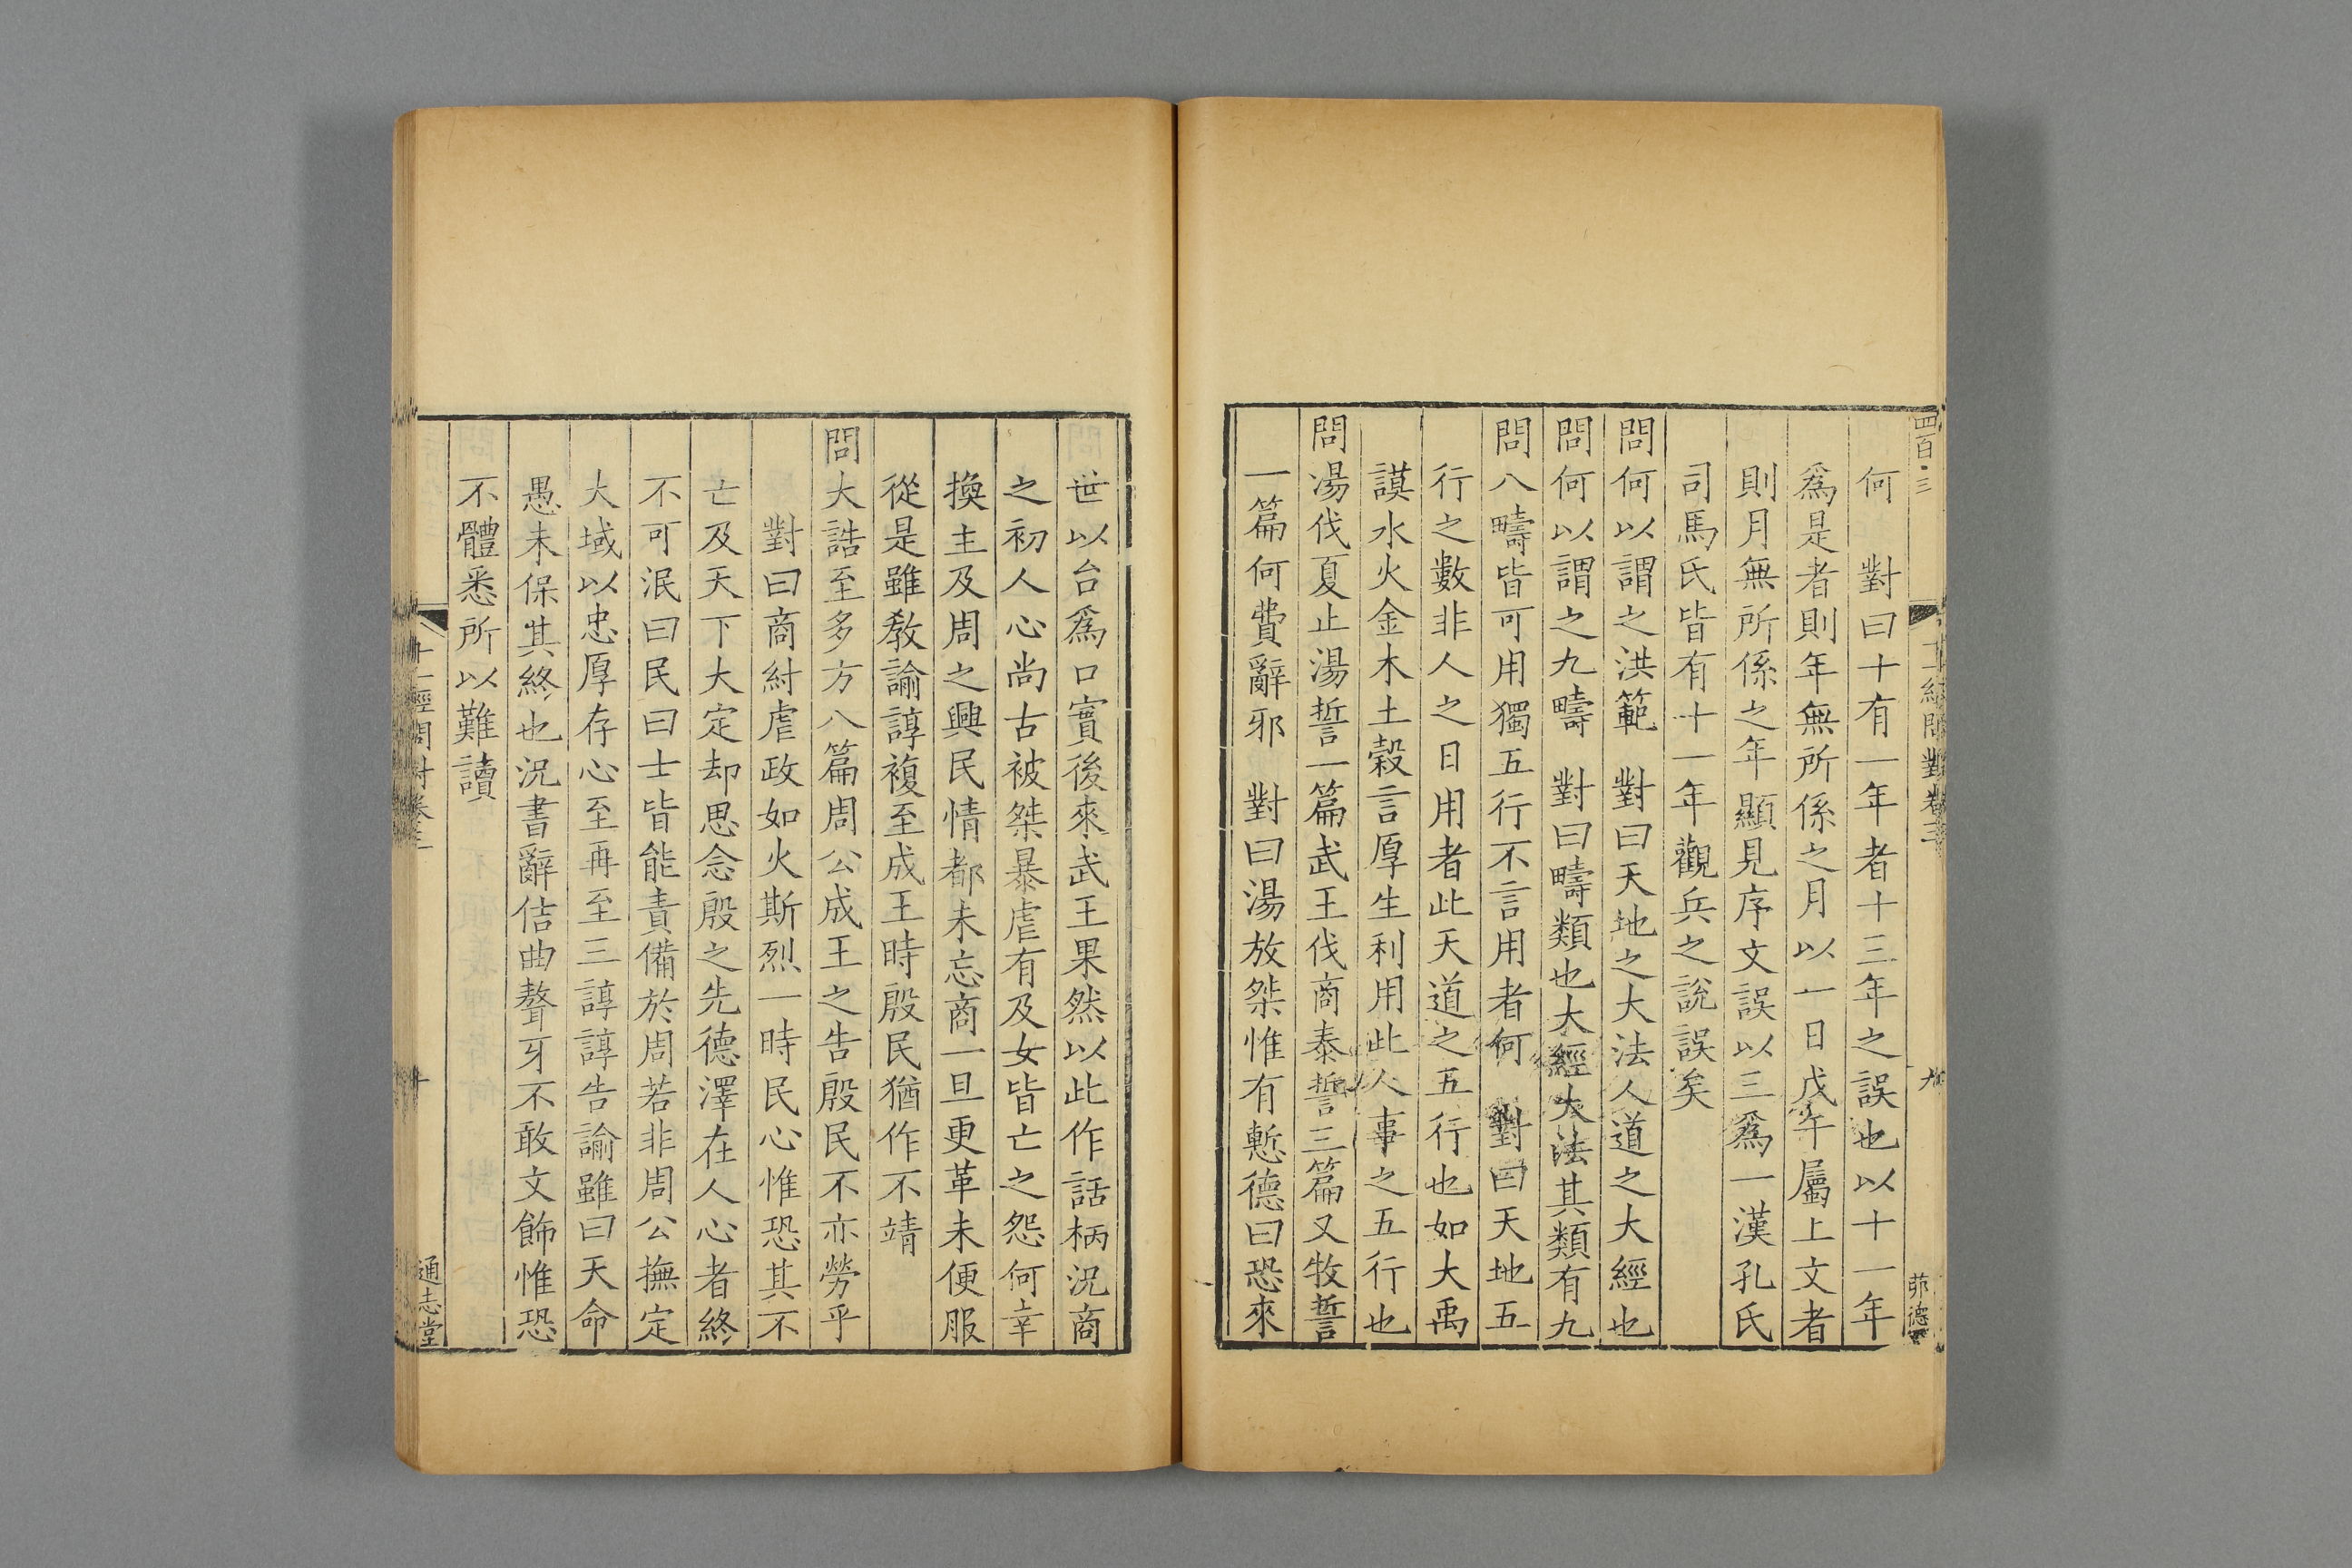 四百三
十一經問對卷三
九
何　對曰十有一年者十三年之誤也以十一年
爲是者則年無所係之月以一日戊午屬上文者
則月無所係之年顯見序文誤以三爲一漢孔氏
司馬氏皆有十一年觀兵之說誤矣
問何以謂之洪範　對曰天地之大法人道之大經也
問何以謂之九疇　對曰疇類也大經大法其類有九
問八疇皆可用獨五行不言用者何　對曰天地五
行之數非人之日用者此天道之五行也如大禹
謨水火金木土穀言厚生利用此人事之五行也
問湯伐夏止湯誓一篇武王伐商泰誓三篇又牧誓
一篇何費辭邪　對曰湯放桀惟有慙德曰恐來
世以台爲口實後來武王果然以此作話柄況商
之初人心尚古被桀暴虐有及女皆亡之怨何幸
換主及周之興民情都未忘商一旦更革未便服
從是雖敎諭諄複至成王時殷民猶作不靖
問大誥至多方八篇周公成王之告殷民不亦勞乎
對曰商紂虐政如火斯烈一時民心惟恐其不
亡及天下大定却思念殷之先德澤在人心者終
不可泯曰民曰士皆能責備於周若非周公撫定
大域以忠厚存心至再至三諄諄告諭雖曰天命
愚未保其終也況書辭佶曲聱牙不敢文飾惟恐
不體悉所以難讀
十一經問對卷三
十
通志堂